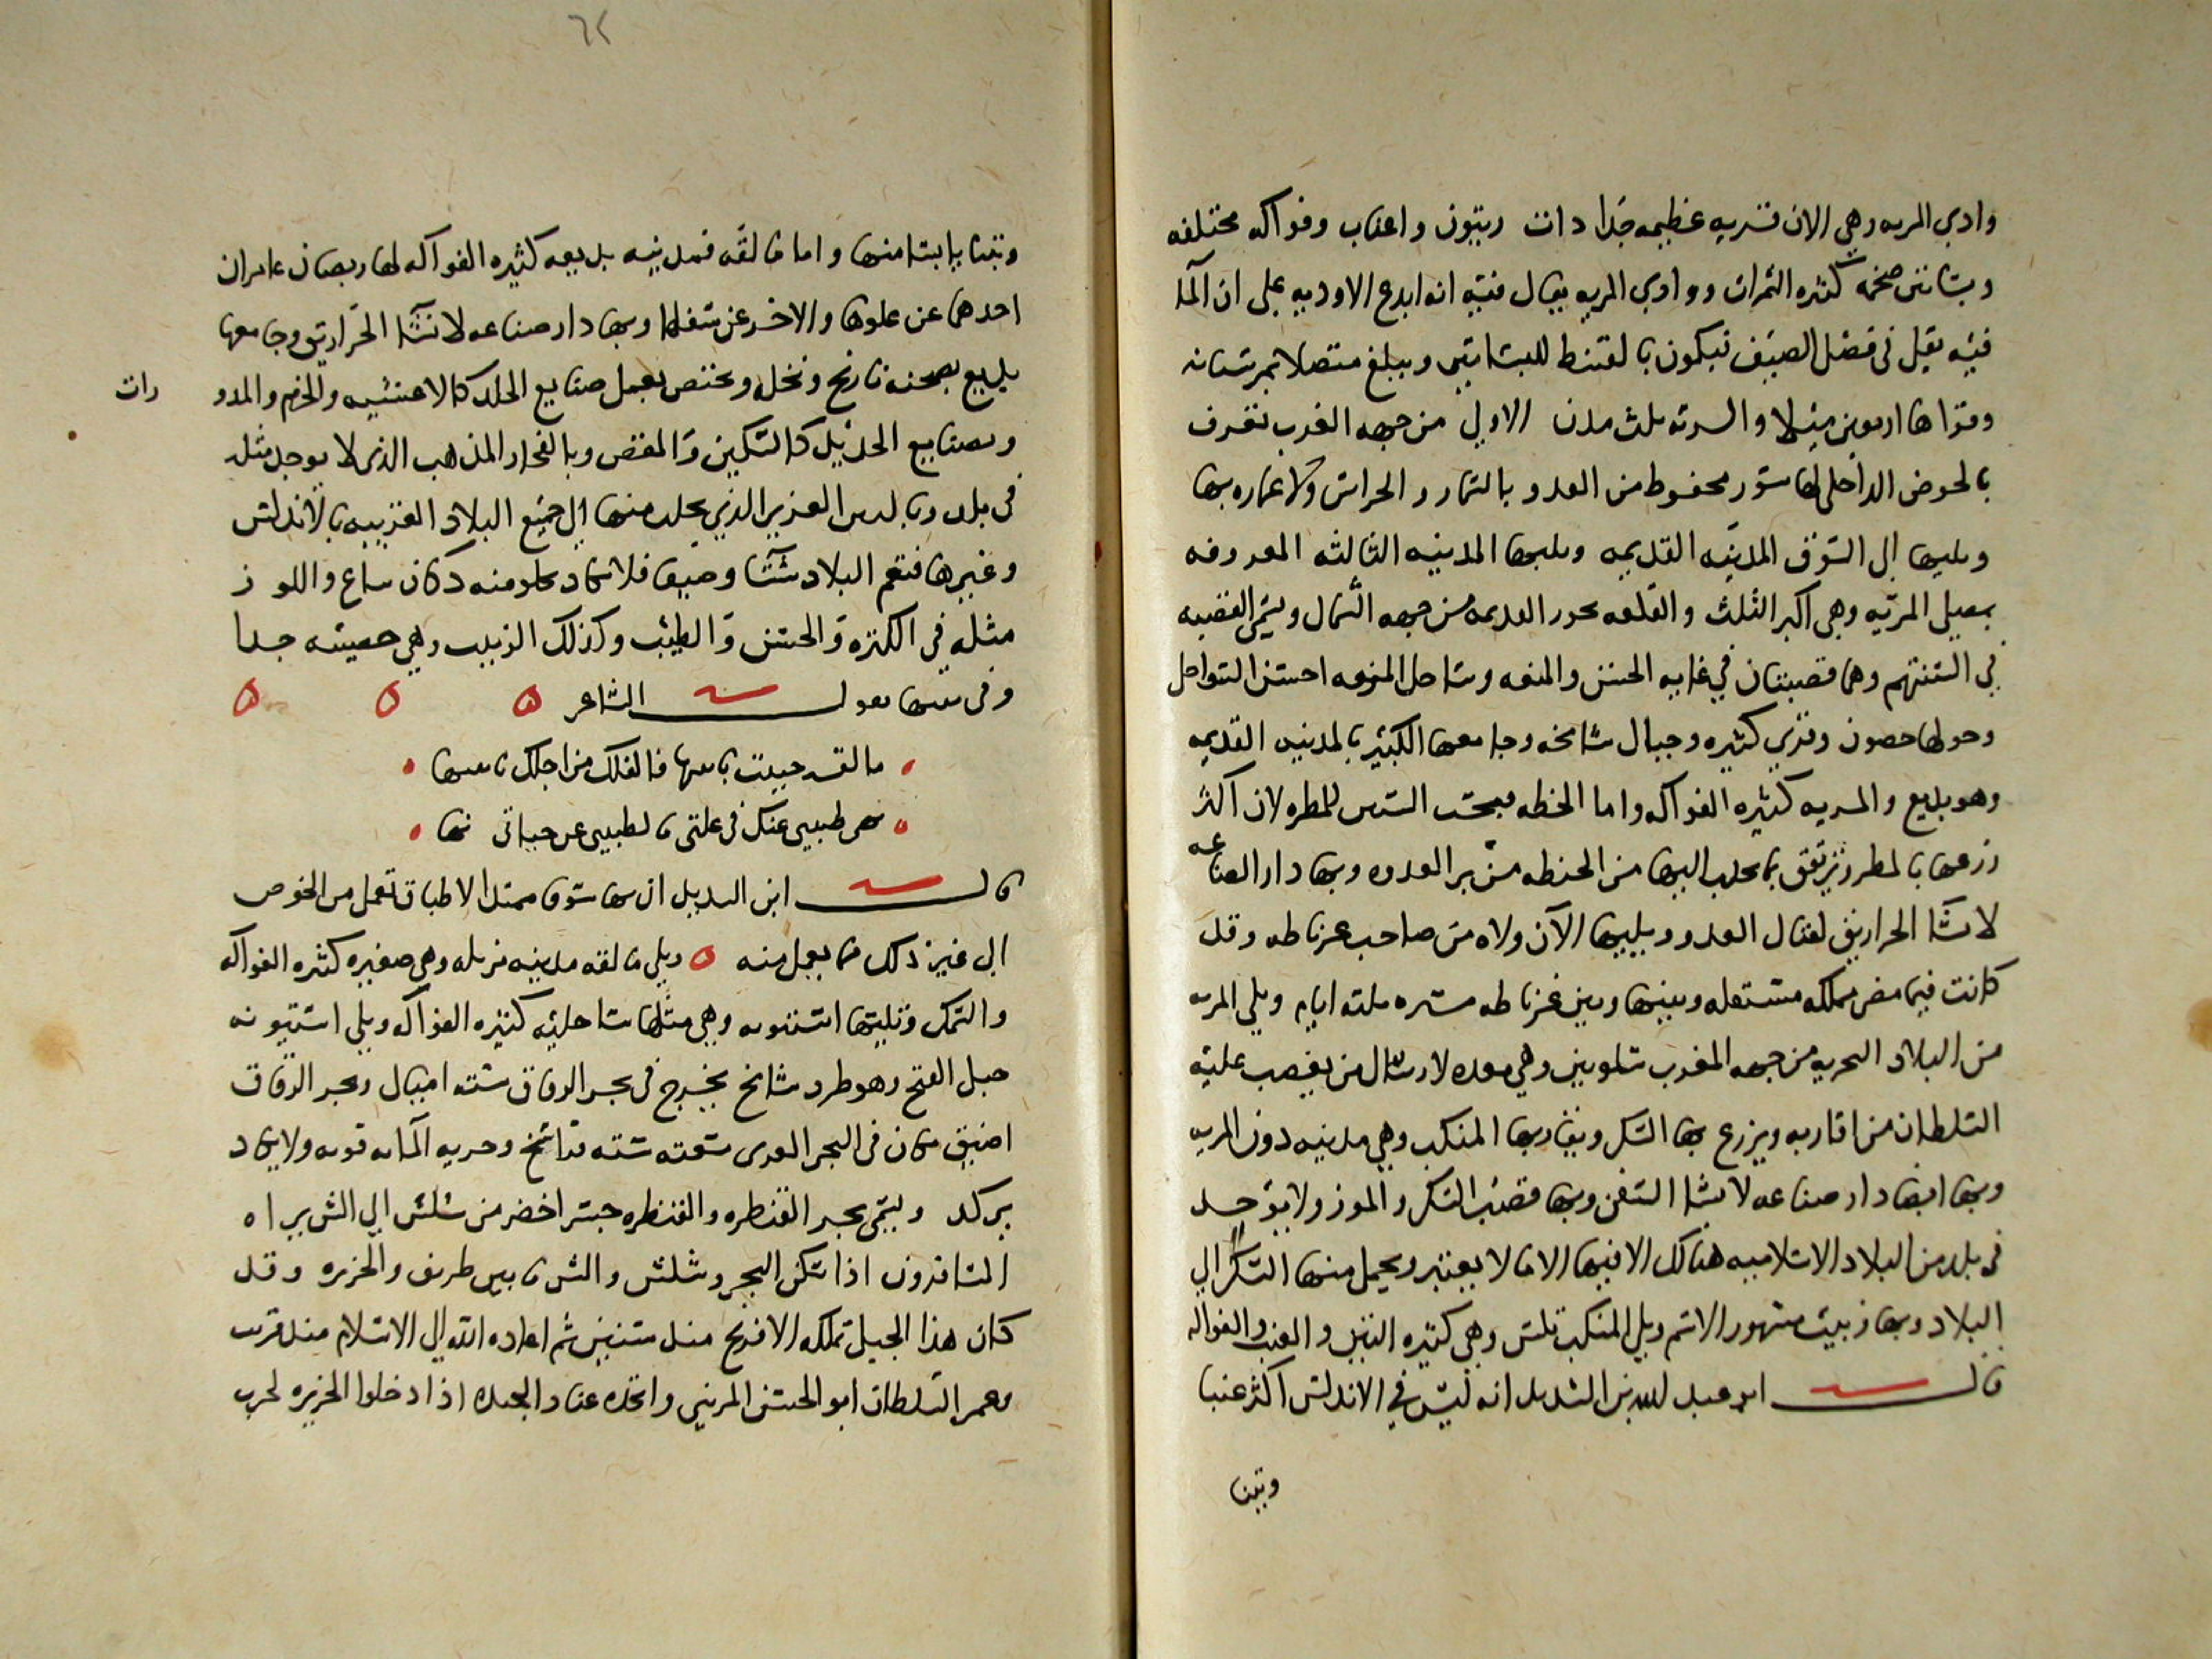 وادي المريه وهي الان قريه عظيمه جدا ذات زيتون واعناب وفواكه مختلفه
وبساتين ضخمه كثيره الثمرات ووادي المريه يقال فيه انه ابدع الاوديه على ان الما
فيه يقل في فصل الصيف فيكون بالقسط للبساتين ويبلغ متصلا نمر بستانه
وقراها اربعين ميلا والمريه ثلث مدن الاولى من جهه الغرب تعرف
بالحوض الداخلي لها سور محفوظ من العدو بالسمار والحراس ولا عماره بها
ويليها الى الشرق المدينه القديمه ويليها المدينه الثالثه المعروفه
بمصلى المريه وهي اكبر الثلث والقلعه بحوز القديمه من جهه الشمال وتسمى القصبه
في السنتهم وهما قصبتان في غايه الحسن والمنعه وساحل المريه احسن السواحل
وحولها حصون وقرى كثيره وجبال شامخه وجامعها الكبير بالمدينه القديمه
وهو بديع والمريه كثيره الفواكه واما الحنطه فبحسب السنين الممطره لان اكثر
زرعها بالمطر وترتفق بما يجلب اليها من الحنطه من بر العدوه وبها دار الصناعه
لانشا الحراريق لقتال العدو ويليها الآن ولاه من صاحب غرناطه وقد
كانت فيما مضى مملكه مستقله وبينها وبين غرناطه مسيره ثلثه ايام ويلي المريه
من البلاد البحريه من جهه المغرب شلوبين وهي معده لارسال من يغضب عليه
السلطان من اقاربه ويزرع بها السكر ويقاربها المنكب وهي مدينه دون المريه
وبها ايضا دار صناعه لانشا السفن وبها قصب السكر والموز ولا يوجد
في بلد من البلاد الاسلاميه هناك الا فيها الا ما لا يعتبر ويحمل منها السكر الى
البلاد وبها زبيب مشهور الاسم ويلي المنكب بلش وهي كثيره التين والعنب والفواكه
قال ابو عبد الله بن السديد انه ليس في الاندلس اكثر عنبا
وتينا
٦٢
وتينا يابسا منها واما مالقه فمدينه بديعه كثيره الفواكه لها ربضان عامران
احدهما عن علوها والاخر عن سفلها وبها دار صناعه لانشا الحراريق وجامعها
بديع بصحنه نارنج ونخل وتختص بعمل صنايع الجلد كالاغشيه والحزم والمدو
رات
وبصنايع الحديد كالسكين والمقص وبالفخار المذهب الذي لا يوجد مثله
في بلد وبالحرير العزيز الذي يجلب منها الى جميع البلاد الغربيه بالاندلس
وغيرها فتعم البلاد شتا وصيفا فلا يكاد يخلو منه دكان بياع واللوز
مثله في الكثره والحسن والطيب وكذلك الزبيب وهي حصينه جدا
وفي تينها يقول الشاعر
مالقه حييت يا تينها فالفلك من اجلك يا تينها
نهى طبيبي عنك في علتي ما لطبيبي عن حياتي نهى
قال ابن السديد ان بها سوقا ممتدا لاطباق تعمل من الخوص
الى غير ذلك مما يعمل منه ويلي مالقه مدينه مربله وهي صغيره كثيره الفواكه
والسمك وتليها استبونه وهي مثلها ساحليه كثيره الفواكه ويلي استبونه
جبل الفتح وهو طرد شامخ يخرج في بحر الزقاق سته اميال وبحر الزقاق
اضيق مكان في البحر الغربي سعته سته فراسخ وجريه الما به قويه ولا يكاد
يركد ويسمى بحر القنطره والقنطره جسر اخضر من شلش الى الش يراه
المسافرون اذا سكن البحر وشلش والش ما بين طريف والجزيره وقد
كان هذا الجبل تملكه الافرنج منذ سنين ثم اعاده الله الى الاسلام منذ قريب
وعمر السلطان ابو الحسن المريني واتخذه عتادا لجنده اذا دخلوا الجزيره لحرب